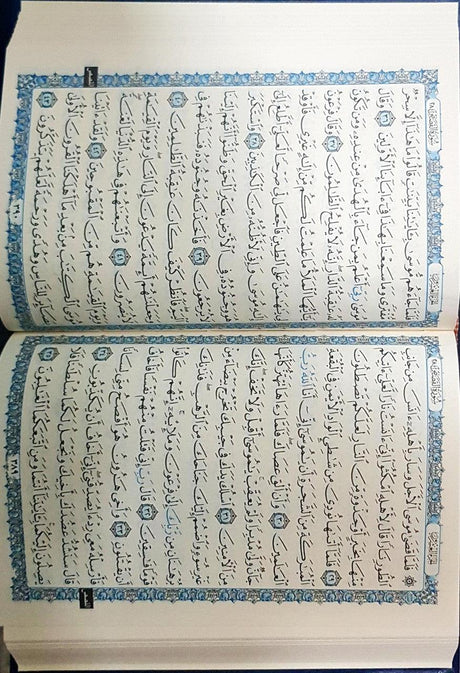 سورة القصص
۞ فَلَمَّا قَضَىٰ مُوسَى ٱلْأَجَلَ وَسَارَ بِأَهْلِهِۦٓ ءَانَسَ مِن جَانِبِ
ٱلطُّورِ نَارًا قَالَ لِأَهْلِهِ ٱمْكُثُوٓا۟ إِنِّىٓ ءَانَسْتُ نَارًا لَّعَلِّىٓ ءَاتِيكُم
مِّنْهَا بِخَبَرٍ أَوْ جَذْوَةٍ مِّنَ ٱلنَّارِ لَعَلَّكُمْ تَصْطَلُونَ
٢٩ فَلَمَّآ أَتَىٰهَا نُودِىَ مِن شَٰطِئِ ٱلْوَادِ ٱلْأَيْمَنِ فِى ٱلْبُقْعَةِ
ٱلْمُبَٰرَكَةِ مِنَ ٱلشَّجَرَةِ أَن يَٰمُوسَىٰٓ إِنِّىٓ أَنَا ٱللَّهُ رَبُّ
ٱلْعَٰلَمِينَ ٣٠ وَأَنْ أَلْقِ عَصَاكَ فَلَمَّا رَءَاهَا تَهْتَزُّ كَأَنَّهَا
جَآنٌّ وَلَّىٰ مُدْبِرًا وَلَمْ يُعَقِّبْ يَٰمُوسَىٰٓ أَقْبِلْ وَلَا تَخَفْ إِنَّكَ
مِنَ ٱلْءَامِنِينَ ٣١ ٱسْلُكْ يَدَكَ فِى جَيْبِكَ تَخْرُجْ بَيْضَآءَ مِنْ
غَيْرِ سُوٓءٍ وَٱضْمُمْ إِلَيْكَ جَنَاحَكَ مِنَ ٱلرَّهْبِ فَذَٰنِكَ
بُرْهَٰنَانِ مِن رَّبِّكَ إِلَىٰ فِرْعَوْنَ وَمَلَإِي۟هِۦٓ إِنَّهُمْ كَانُوا۟
قَوْمًا فَٰسِقِينَ ٣٢ قَالَ رَبِّ إِنِّى قَتَلْتُ مِنْهُمْ نَفْسًا فَأَخَافُ
أَن يَقْتُلُونِ ٣٣ وَأَخِى هَٰرُونُ هُوَ أَفْصَحُ مِنِّى لِسَانًا
فَأَرْسِلْهُ مَعِىَ رِدْءًا يُصَدِّقُنِىٓ إِنِّىٓ أَخَافُ أَن يُكَذِّبُونِ ٣٤
قَالَ سَنَشُدُّ عَضُدَكَ بِأَخِيكَ وَنَجْعَلُ لَكُمَا سُلْطَٰنًا فَلَا
يَصِلُونَ إِلَيْكُمَا بِـَٔايَٰتِنَآ أَنتُمَا وَمَنِ ٱتَّبَعَكُمَا ٱلْغَٰلِبُونَ ٣٥
سورة القصص
فَلَمَّا جَآءَهُم مُّوسَىٰ بِـَٔايَٰتِنَا بَيِّنَٰتٍ قَالُوا۟ مَا هَٰذَآ إِلَّا سِحْرٌ
مُّفْتَرًى وَمَا سَمِعْنَا بِهَٰذَا فِىٓ ءَابَآئِنَا ٱلْأَوَّلِينَ ٣٦ وَقَالَ
مُوسَىٰ رَبِّىٓ أَعْلَمُ بِمَن جَآءَ بِٱلْهُدَىٰ مِنْ عِندِهِۦ وَمَن تَكُونُ
لَهُۥ عَٰقِبَةُ ٱلدَّارِ إِنَّهُۥ لَا يُفْلِحُ ٱلظَّٰلِمُونَ ٣٧ وَقَالَ فِرْعَوْنُ
يَٰٓأَيُّهَا ٱلْمَلَأُ مَا عَلِمْتُ لَكُم مِّنْ إِلَٰهٍ غَيْرِى فَأَوْقِدْ
لِى يَٰهَٰمَٰنُ عَلَى ٱلطِّينِ فَٱجْعَل لِّى صَرْحًا لَّعَلِّىٓ أَطَّلِعُ إِلَىٰٓ
إِلَٰهِ مُوسَىٰ وَإِنِّى لَأَظُنُّهُۥ مِنَ ٱلْكَٰذِبِينَ ٣٨ وَٱسْتَكْبَرَ
هُوَ وَجُنُودُهُۥ فِى ٱلْأَرْضِ بِغَيْرِ ٱلْحَقِّ وَظَنُّوٓا۟ أَنَّهُمْ إِلَيْنَا
لَا يُرْجَعُونَ ٣٩ فَأَخَذْنَٰهُ وَجُنُودَهُۥ فَنَبَذْنَٰهُمْ فِى
ٱلْيَمِّ فَٱنظُرْ كَيْفَ كَانَ عَٰقِبَةُ ٱلظَّٰلِمِينَ ٤٠
وَجَعَلْنَٰهُمْ أَئِمَّةً يَدْعُونَ إِلَى ٱلنَّارِ وَيَوْمَ ٱلْقِيَٰمَةِ
لَا يُنصَرُونَ ٤١ وَأَتْبَعْنَٰهُمْ فِى هَٰذِهِ ٱلدُّنْيَا لَعْنَةً
وَيَوْمَ ٱلْقِيَٰمَةِ هُم مِّنَ ٱلْمَقْبُوحِينَ ٤٢ وَلَقَدْ ءَاتَيْنَا
مُوسَى ٱلْكِتَٰبَ مِنۢ بَعْدِ مَآ أَهْلَكْنَا ٱلْقُرُونَ ٱلْأُولَىٰ
بَصَآئِرَ لِلنَّاسِ وَهُدًى وَرَحْمَةً لَّعَلَّهُمْ يَتَذَكَّرُونَ ٤٣